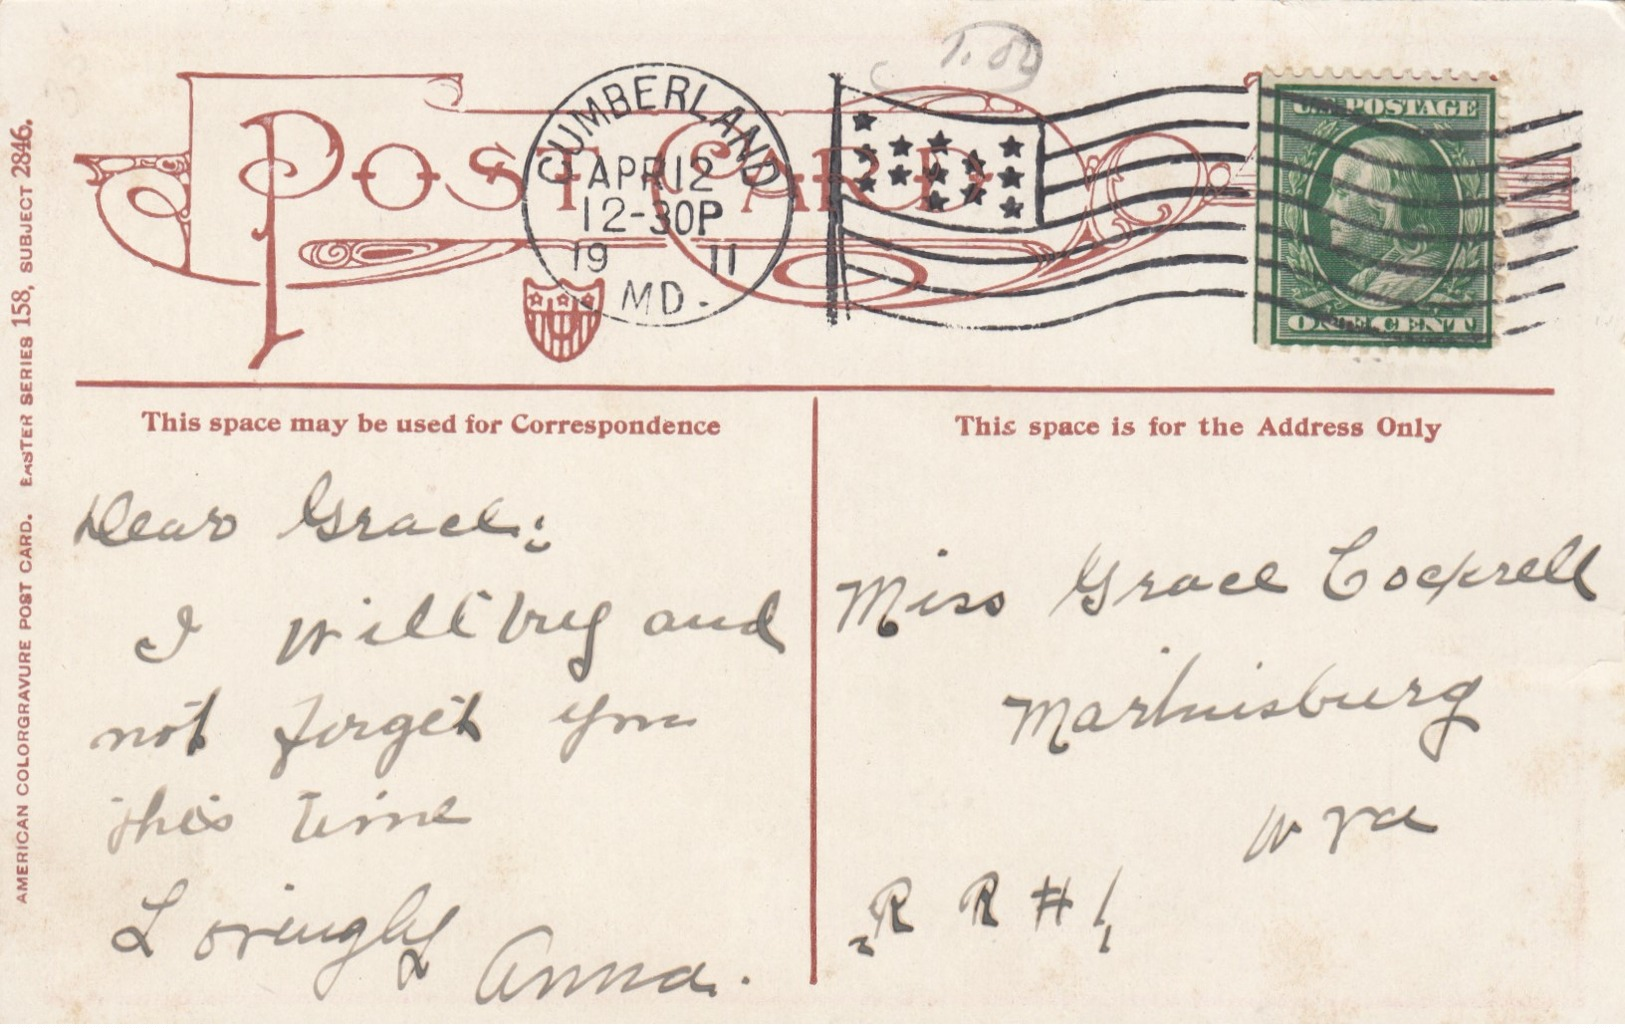 1.00
POST CARD
CUMBERLAND
APR 12
12-30P
19 11
MD.
U.S. POSTAGE
ONE CENT
AMERICAN COLORGRAVURE POST CARD. EASTER SERIES 158, SUBJECT 2846.
This space may be used for Correspondence
Dear Grace:
I will try and
not forget you
this time
Lovingly
Anna.
This space is for the Address Only
Miss Grace Cockrell
Martinsburg
W Va
R R # 1